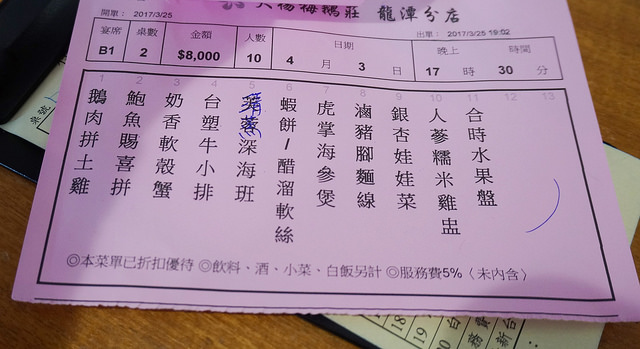 大楊梅鵝莊 龍潭分店
開單： 2017/3/25
出單： 2017/3/25 19:02
宴席 桌數 金額 人數 日期 晚上 時間
B1 2 $8,000 10 4 月 3 日 17 時 30 分
1 2 3 4 5 6 7 8 9 10 11 12 13
鵝肉拼土雞
鮑魚賜喜拼
奶香軟殼蟹
台塑牛小排
深海班
蝦餅/醋溜軟絲
虎掌海參煲
滷豬腳麵線
銀杏娃娃菜
人蔘糯米雞盅
合時水果盤
◎本菜單已折扣優待 ◎飲料、酒、小菜、白飯另計 ◎服務費5%〈未內含〉
18
19